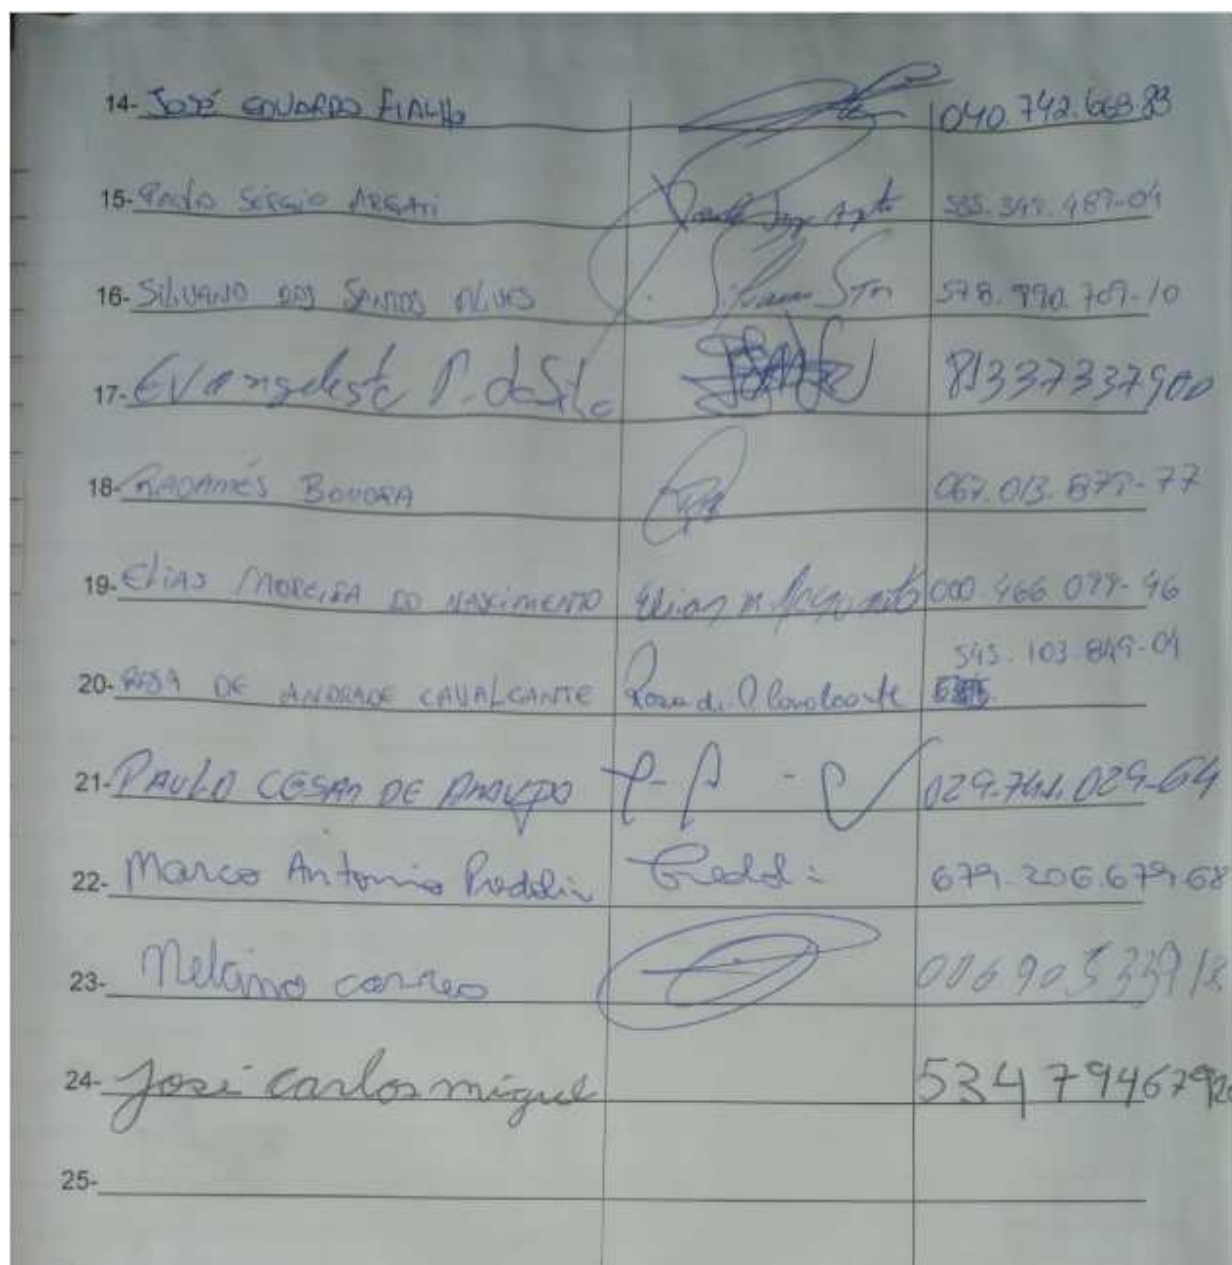 14- José EDUARDO FIALHO 040.742.669.83
15- Paulo Sérgio ARGATI 535.347.487-04
16- SILVANO DOS SANTOS ALVES 578.990.709-10
17- Evangelista P. da Silva 81337337900
18- RADAMÉS BOVORA 067.013.879-77
19- Elias MOREIRA DO NASCIMENTO 000.466.079-46
20- ROSA DE ANDRADE CAVALCANTE Rosa de A Cavalcante 545.103.849-04
21- PAULO CESAR DE ARAUJO 029.741.029-64
22- Marco Antonio 679.206.679.68
23- Nelcino correo
24- José Carlos miguel 534794679
25-